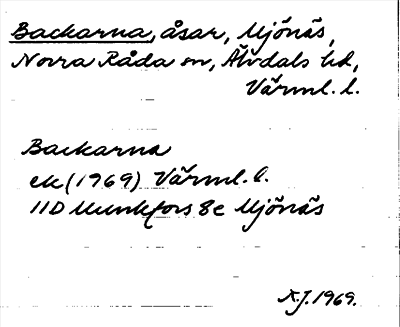 Backarna, åsar, Mjönäs,
Norra Råda sn, Älvdals hd,
Värml. l.
Backarna
ek (1969) Värml. l.
11D Munkfors 8e Mjönäs
A.J. 1969.